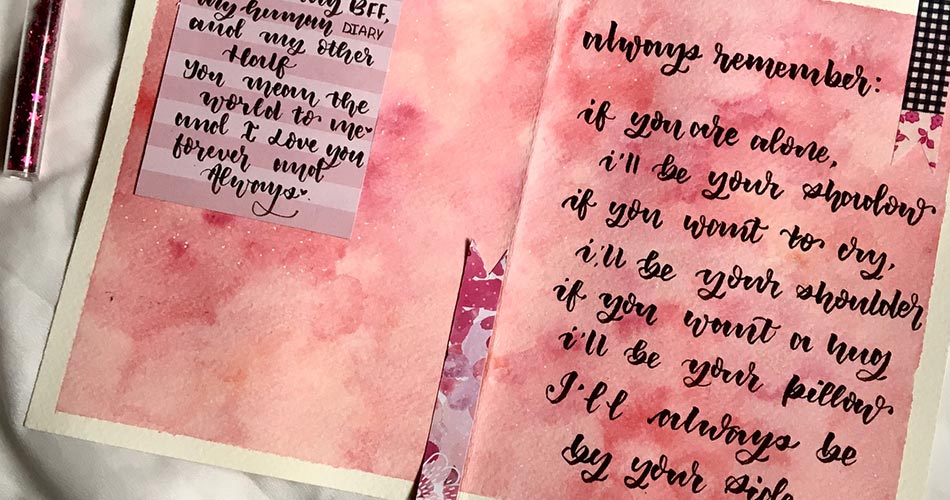 my BFF,
my human DIARY
and my other
Half
You mean the
world to me
and I Love you
forever and
Always.
always remember:
if you are alone,
i'll be your shadow
if you want to cry,
i'll be your shoulder
if you want a hug
i'll be your pillow
I'll always be
by your side